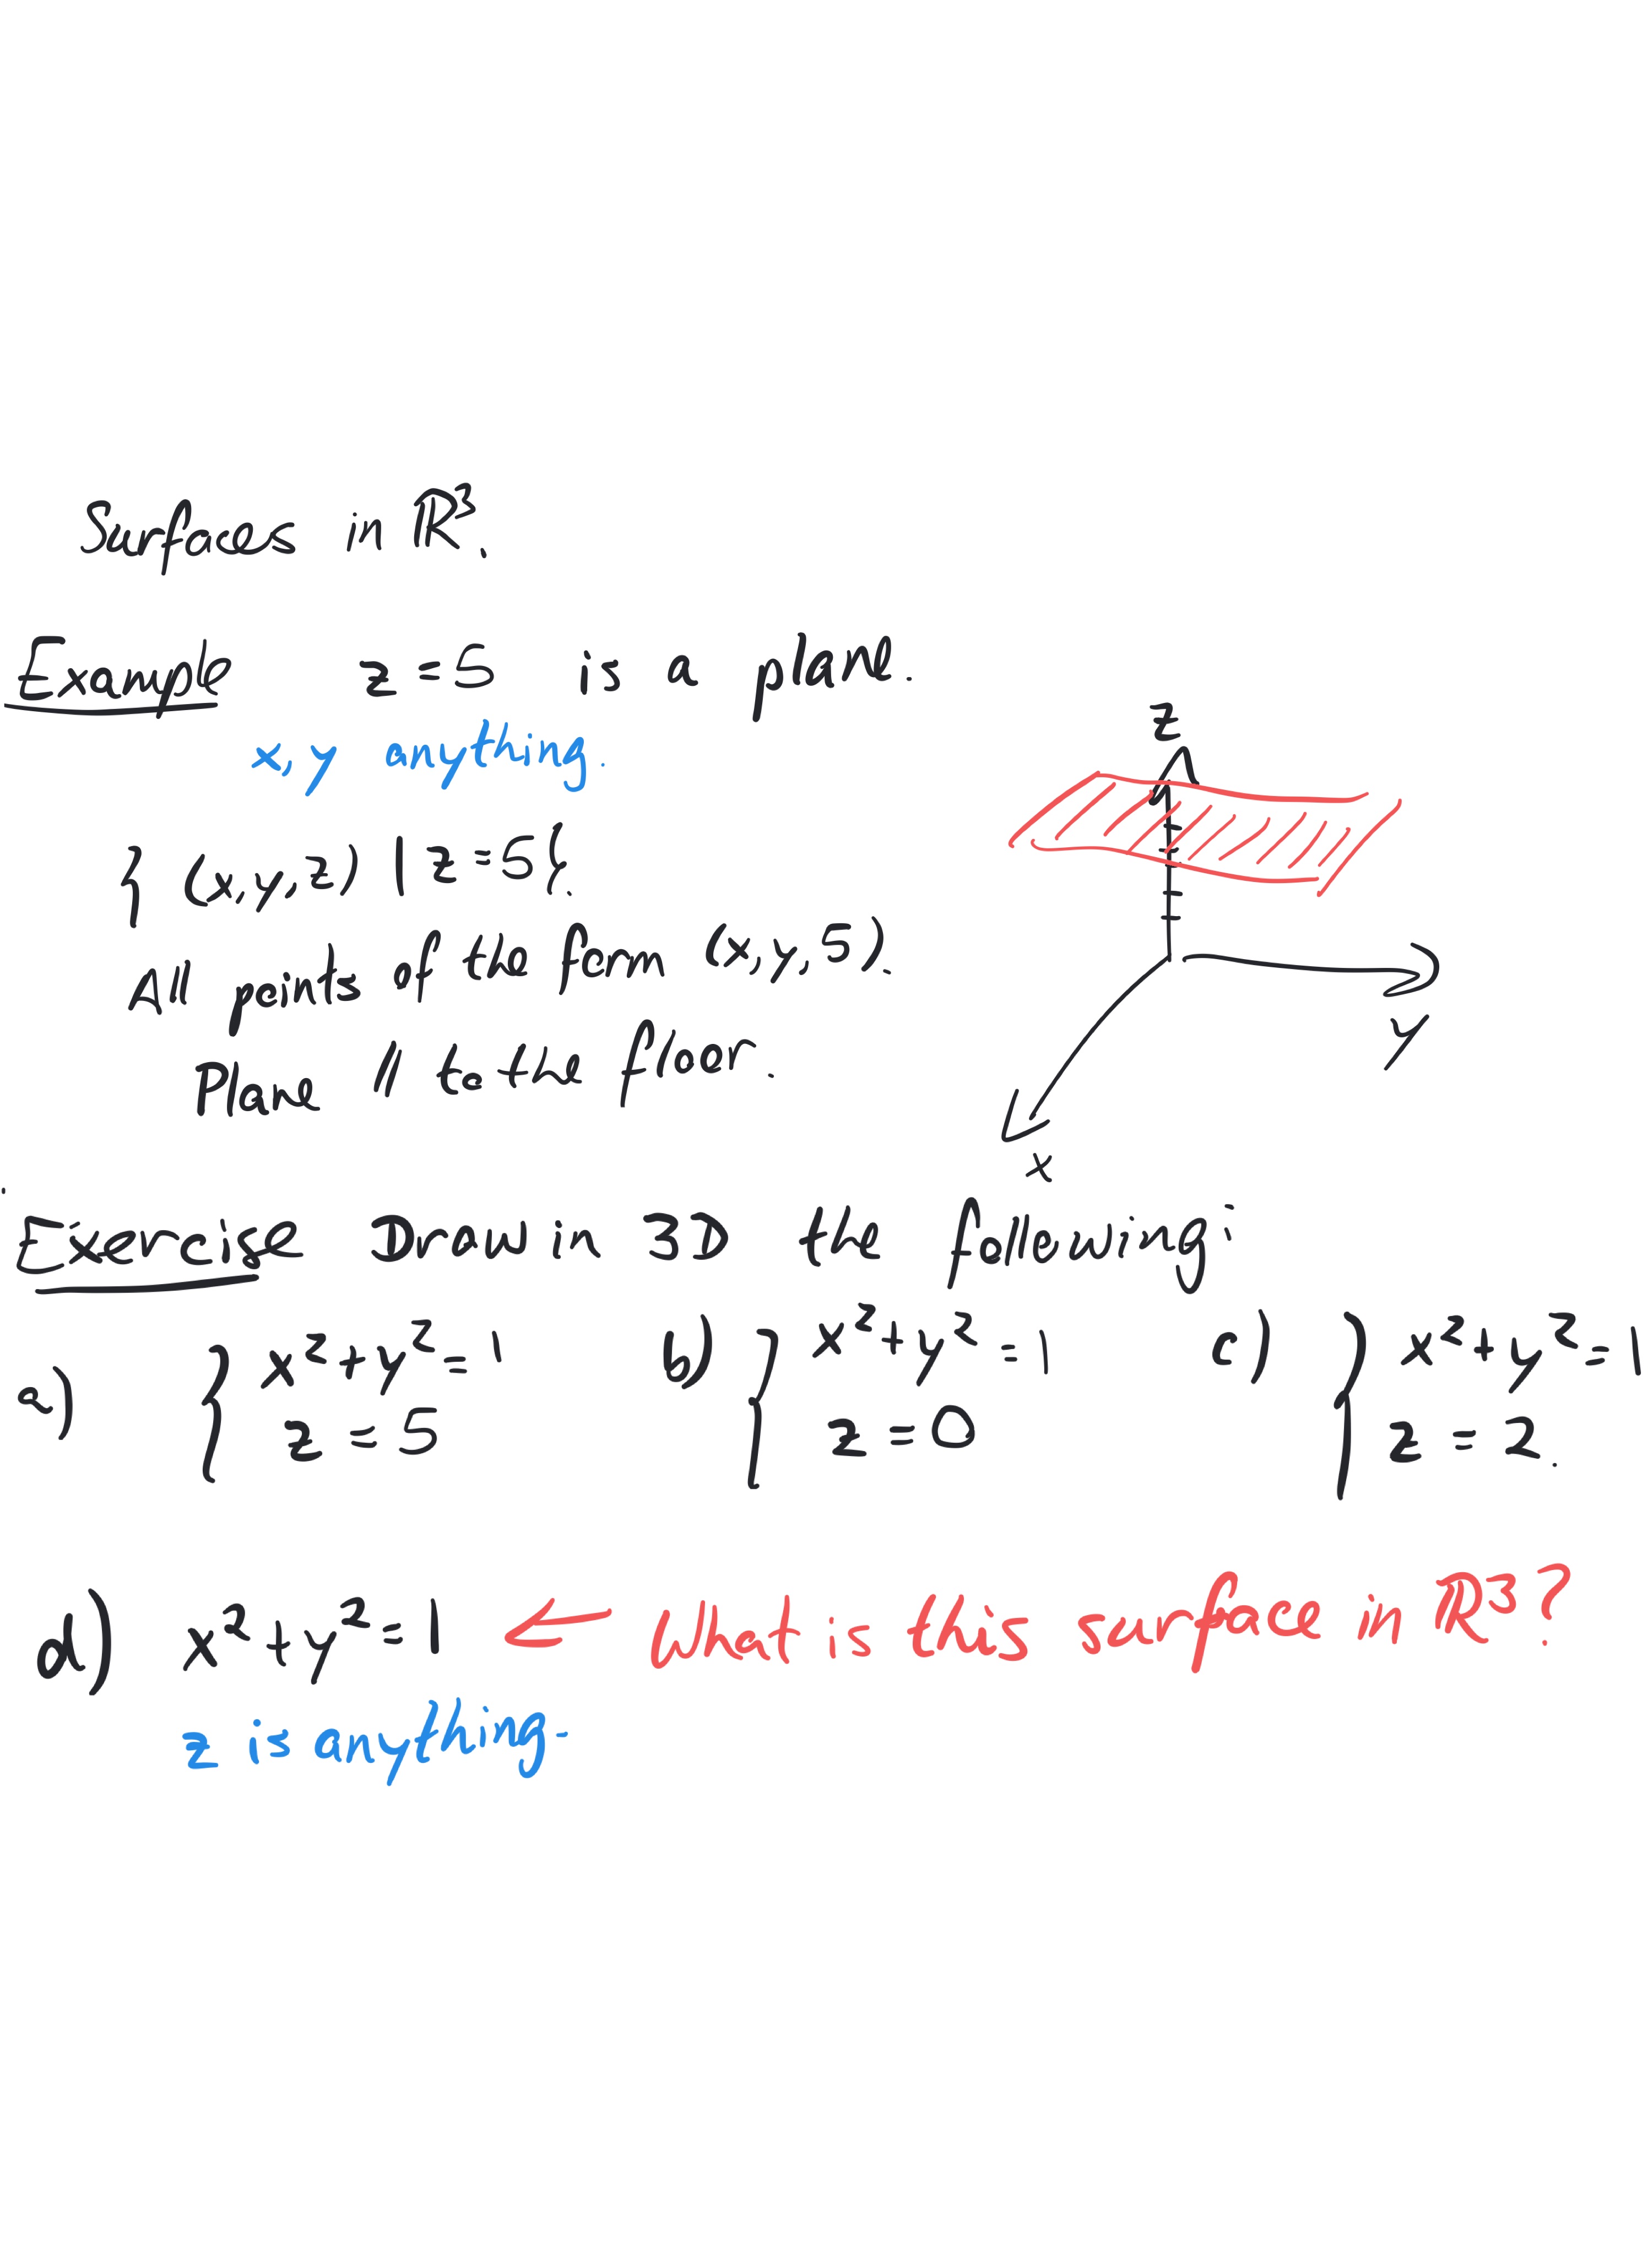 Surfaces in ℝ³.
Example z = 5 is a plane.
x, y anything.
{ (x, y, z) | z = 5 }.
All points of the form (x, y, 5).
Plane // to the floor.
z
y
x
Exercise Draw in 3D the following:
a) { x² + y² = 1 b) { x² + y² = 1 c) { x² + y² = 1
z = 5 z = 0 z = 2.
d) x² + y² = 1 ← What is this surface in ℝ³?
z is anything.